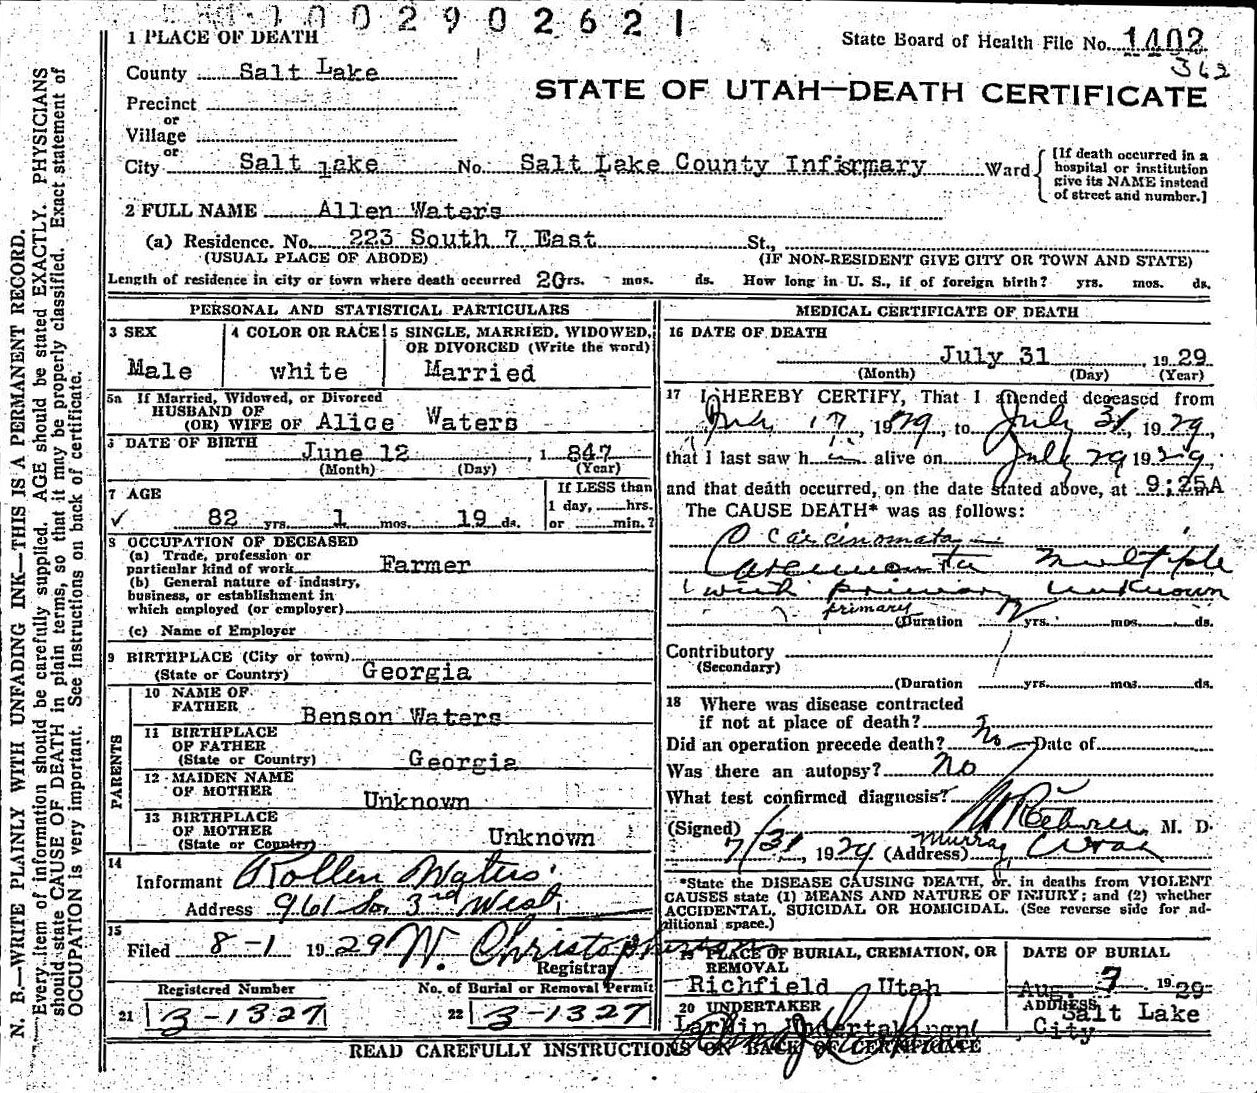 1002902621
State Board of Health File No. 1402
362
STATE OF UTAH—DEATH CERTIFICATE
1 PLACE OF DEATH
County Salt Lake
Precinct
or
Village
or
City Salt Lake No. Salt Lake County Infirmary Ward
[If death occurred in a
hospital or institution
give its NAME instead
of street and number.]
2 FULL NAME Allen Waters
(a) Residence. No. 223 South 7 East St.,
(USUAL PLACE OF ABODE) (IF NON-RESIDENT GIVE CITY OR TOWN AND STATE)
Length of residence in city or town where death occurred 20 yrs. mos. ds. How long in U. S., if of foreign birth? yrs. mos. ds.
PERSONAL AND STATISTICAL PARTICULARS
3 SEX
Male
4 COLOR OR RACE
white
5 SINGLE, MARRIED, WIDOWED,
OR DIVORCED (Write the word)
Married
5a If Married, Widowed, or Divorced
HUSBAND OF
(OR) WIFE OF Alice Waters
DATE OF BIRTH
June 12, 1847
(Month) (Day) (Year)
7 AGE
82 yrs. 1 mos. 19 ds.
If LESS than
1 day, hrs.
or min.?
8 OCCUPATION OF DECEASED
(a) Trade, profession or
particular kind of work Farmer
(b) General nature of industry,
business, or establishment in
which employed (or employer)
(c) Name of Employer
9 BIRTHPLACE (City or town)
(State or Country) Georgia
PARENTS
10 NAME OF
FATHER Benson Waters
11 BIRTHPLACE
OF FATHER
(State or Country) Georgia
12 MAIDEN NAME
OF MOTHER Unknown
13 BIRTHPLACE
OF MOTHER
(State or Country) Unknown
14
Informant Rollen Waters
Address 961 So. 3rd West
15
Filed 8-1 1929 W. Christopherson
Registrar
Registered Number
21 3-1327
No. of Burial or Removal Permit
22 3-1327
MEDICAL CERTIFICATE OF DEATH
16 DATE OF DEATH
July 31 1929
(Month) (Day) (Year)
17 I HEREBY CERTIFY, That I attended deceased from
July 17, 1929, to July 31, 1929,
that I last saw him alive on July 29 1929
and that death occurred, on the date stated above, at 9:25A
The CAUSE DEATH* was as follows:
Carcinomata
Carcinomata multiple
with primary unknown
primary
(Duration yrs. mos. ds.
Contributory
(Secondary)
(Duration yrs. mos. ds.
18 Where was disease contracted
if not at place of death?
Did an operation precede death? No Date of
Was there an autopsy? No
What test confirmed diagnosis?
(Signed) M. D.
7/31, 1929 (Address) Murray Utah
*State the DISEASE CAUSING DEATH, or, in deaths from VIOLENT
CAUSES state (1) MEANS AND NATURE OF INJURY; and (2) whether
ACCIDENTAL, SUICIDAL OR HOMICIDAL. (See reverse side for ad-
ditional space.)
19 PLACE OF BURIAL, CREMATION, OR
REMOVAL
Richfield Utah
DATE OF BURIAL
Aug. 3 1929
20 UNDERTAKER
Larkin Undertaking
ADDRESS
Salt Lake
City
READ CAREFULLY INSTRUCTIONS ON BACK OF CERTIFICATE
N. B.—WRITE PLAINLY WITH UNFADING INK—THIS IS A PERMANENT RECORD.
Every item of information should be carefully supplied. AGE should be stated EXACTLY. PHYSICIANS
should state CAUSE OF DEATH in plain terms, so that it may be properly classified. Exact statement of
OCCUPATION is very important. See instructions on back of certificate.